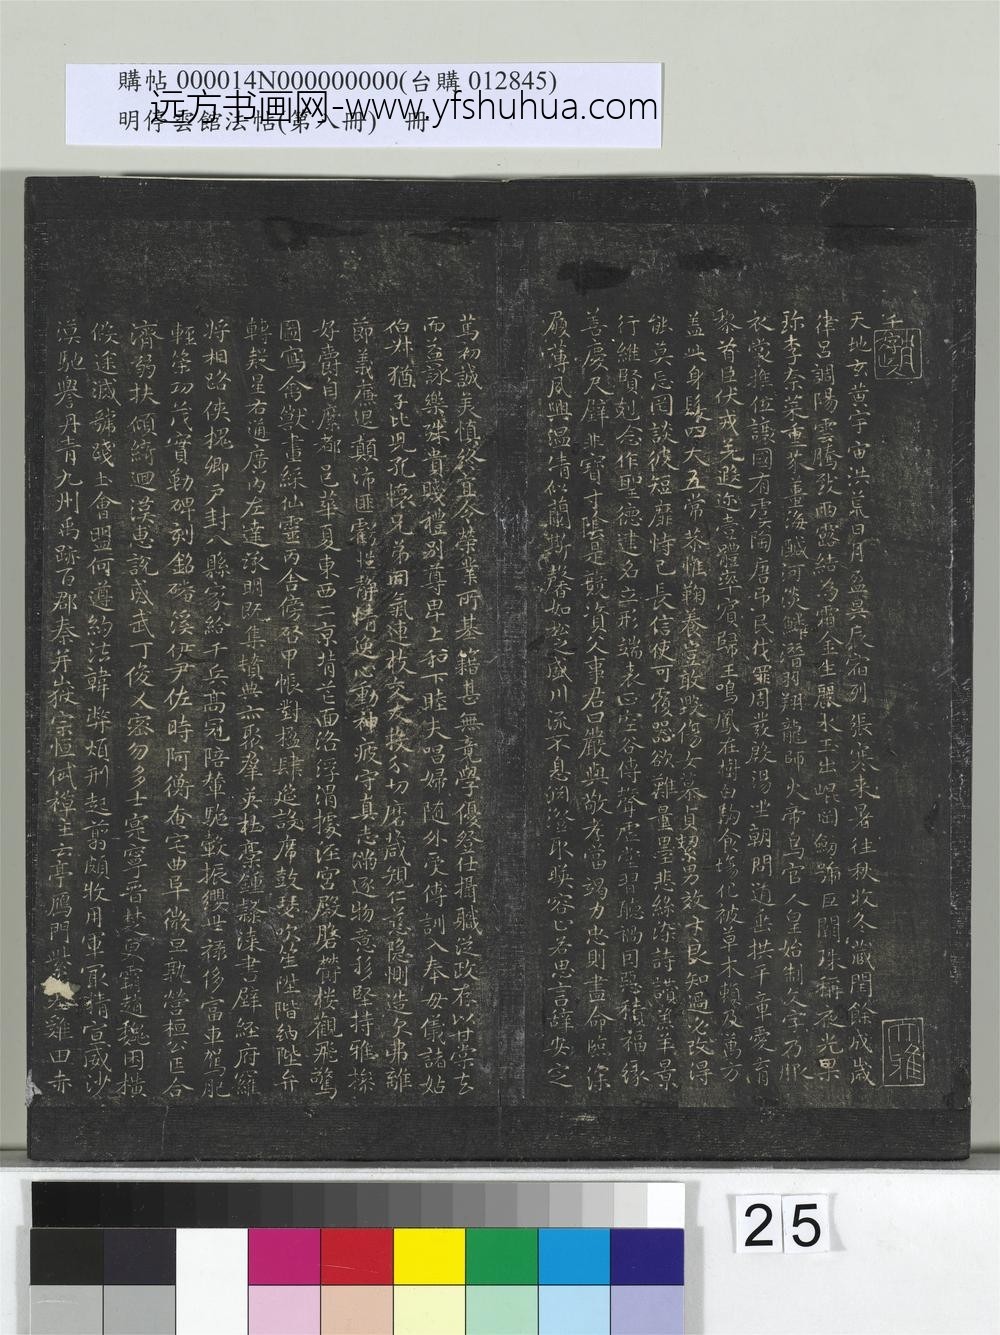 購帖 000014N000000000(台購 012845)
远方书画网-www.yfshuhua.com
明停雲館法帖(第八冊) 冊
千
天地玄黃宇宙洪荒日月盈昃辰宿列張寒來暑往秋收冬藏閏餘成歲
律呂調陽雲騰致雨露結為霜金生麗水玉出崐岡劒號巨闕珠稱夜光果
珍李柰菜重芥薑海鹹河淡鱗潛羽翔龍師火帝鳥官人皇始制文字乃服
衣裳推位讓國有虞陶唐弔民伐罪周發殷湯坐朝問道垂拱平章愛育
黎首臣伏戎羌遐迩壹體率賓歸王鳴鳳在樹白駒食場化被草木賴及萬方
蓋此身髮四大五常恭惟鞠養豈敢毀傷女慕貞絜男效才良知過必改得
能莫忘罔談彼短靡恃己長信使可覆器欲難量墨悲絲染詩讚羔羊景
行維賢剋念作聖德建名立形端表正空谷傳聲虛堂習聽禍因惡積福緣
善慶尺璧非寶寸陰是競資父事君曰嚴與敬孝當竭力忠則盡命臨深
履薄夙興溫凊似蘭斯馨如松之盛川流不息淵澄取暎容止若思言辭安定
大雅
篤初誠美慎終宜令榮業所基籍甚無竟學優登仕攝職從政存以甘棠去
而益詠樂殊貴賤禮別尊卑上和下睦夫唱婦隨外受傅訓入奉母儀諸姑
伯叔猶子比兒孔懷兄弟同氣連枝交友投分切磨箴規仁慈隱惻造次弗離
節義廉退顛沛匪虧性靜情逸心動神疲守真志滿逐物意移堅持雅操
好爵自縻都邑華夏東西二京背芒面洛浮渭據涇宮殿盤鬱樓觀飛驚
圖寫禽獸畫綵仙靈丙舍傍啓甲帳對楹肆筵設席鼓瑟吹笙陞階納陛弁
轉疑星右通廣內左達承明既集墳典亦聚羣英杜稾鍾隸漆書壁經府羅
將相路俠槐卿戶封八縣家給千兵高冠陪輦驅轂振纓世祿侈富車駕肥
輕策功茂實勒碑刻銘磻溪伊尹佐時阿衡奄宅曲阜微旦孰營桓公匡合
濟弱扶傾綺迴漢惠說感武丁俊乂密勿多士寔寧晉楚更霸趙魏困橫
假途滅虢踐土會盟何遵約法韓弊煩刑起翦頗牧用軍最精宣威沙
漠馳譽丹青九州禹跡百郡秦并嶽宗恒岱禪主云亭鴈門紫塞雞田赤
25